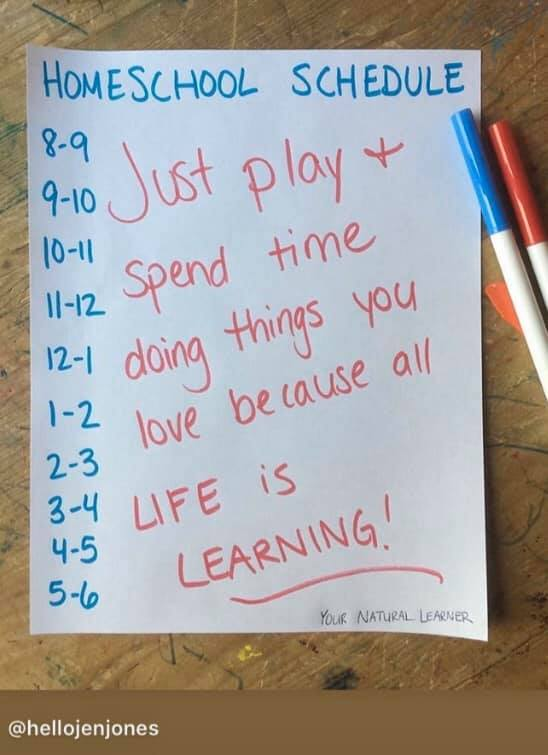 HOMESCHOOL SCHEDULE
8-9
9-10
10-11
11-12
12-1
1-2
2-3
3-4
4-5
5-6
Just play +
spend time
doing things you
love because all
LIFE is
LEARNING!
YOUR NATURAL LEARNER
@hellojenjones